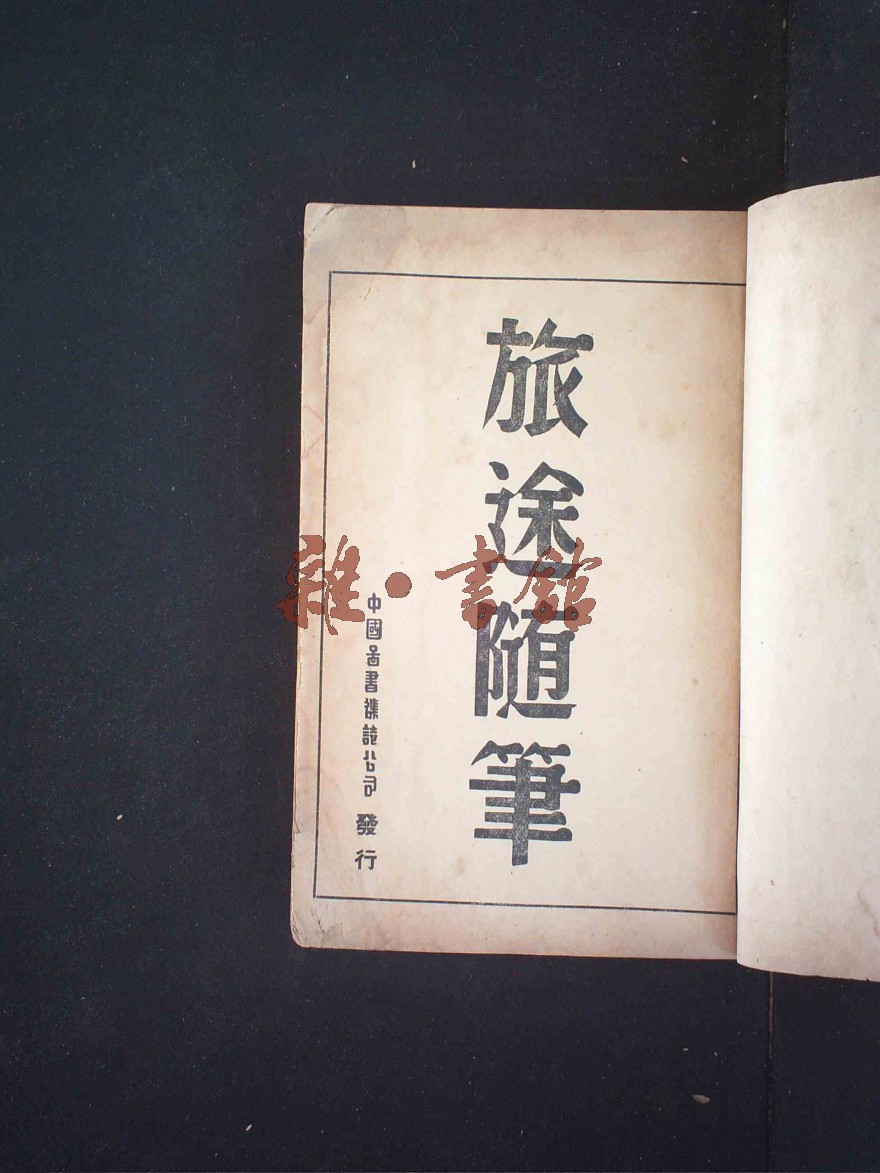 旅途隨筆
中國啚書襍誌公司 發行
雜·書館